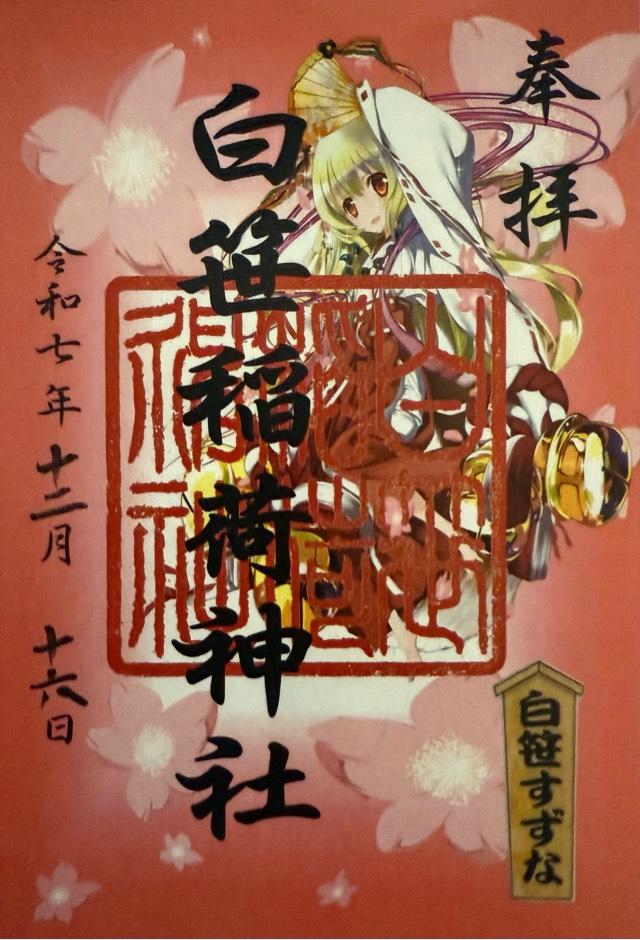 奉拝
白笹稲荷神社
令和七年十二月十六日
白笹すずな